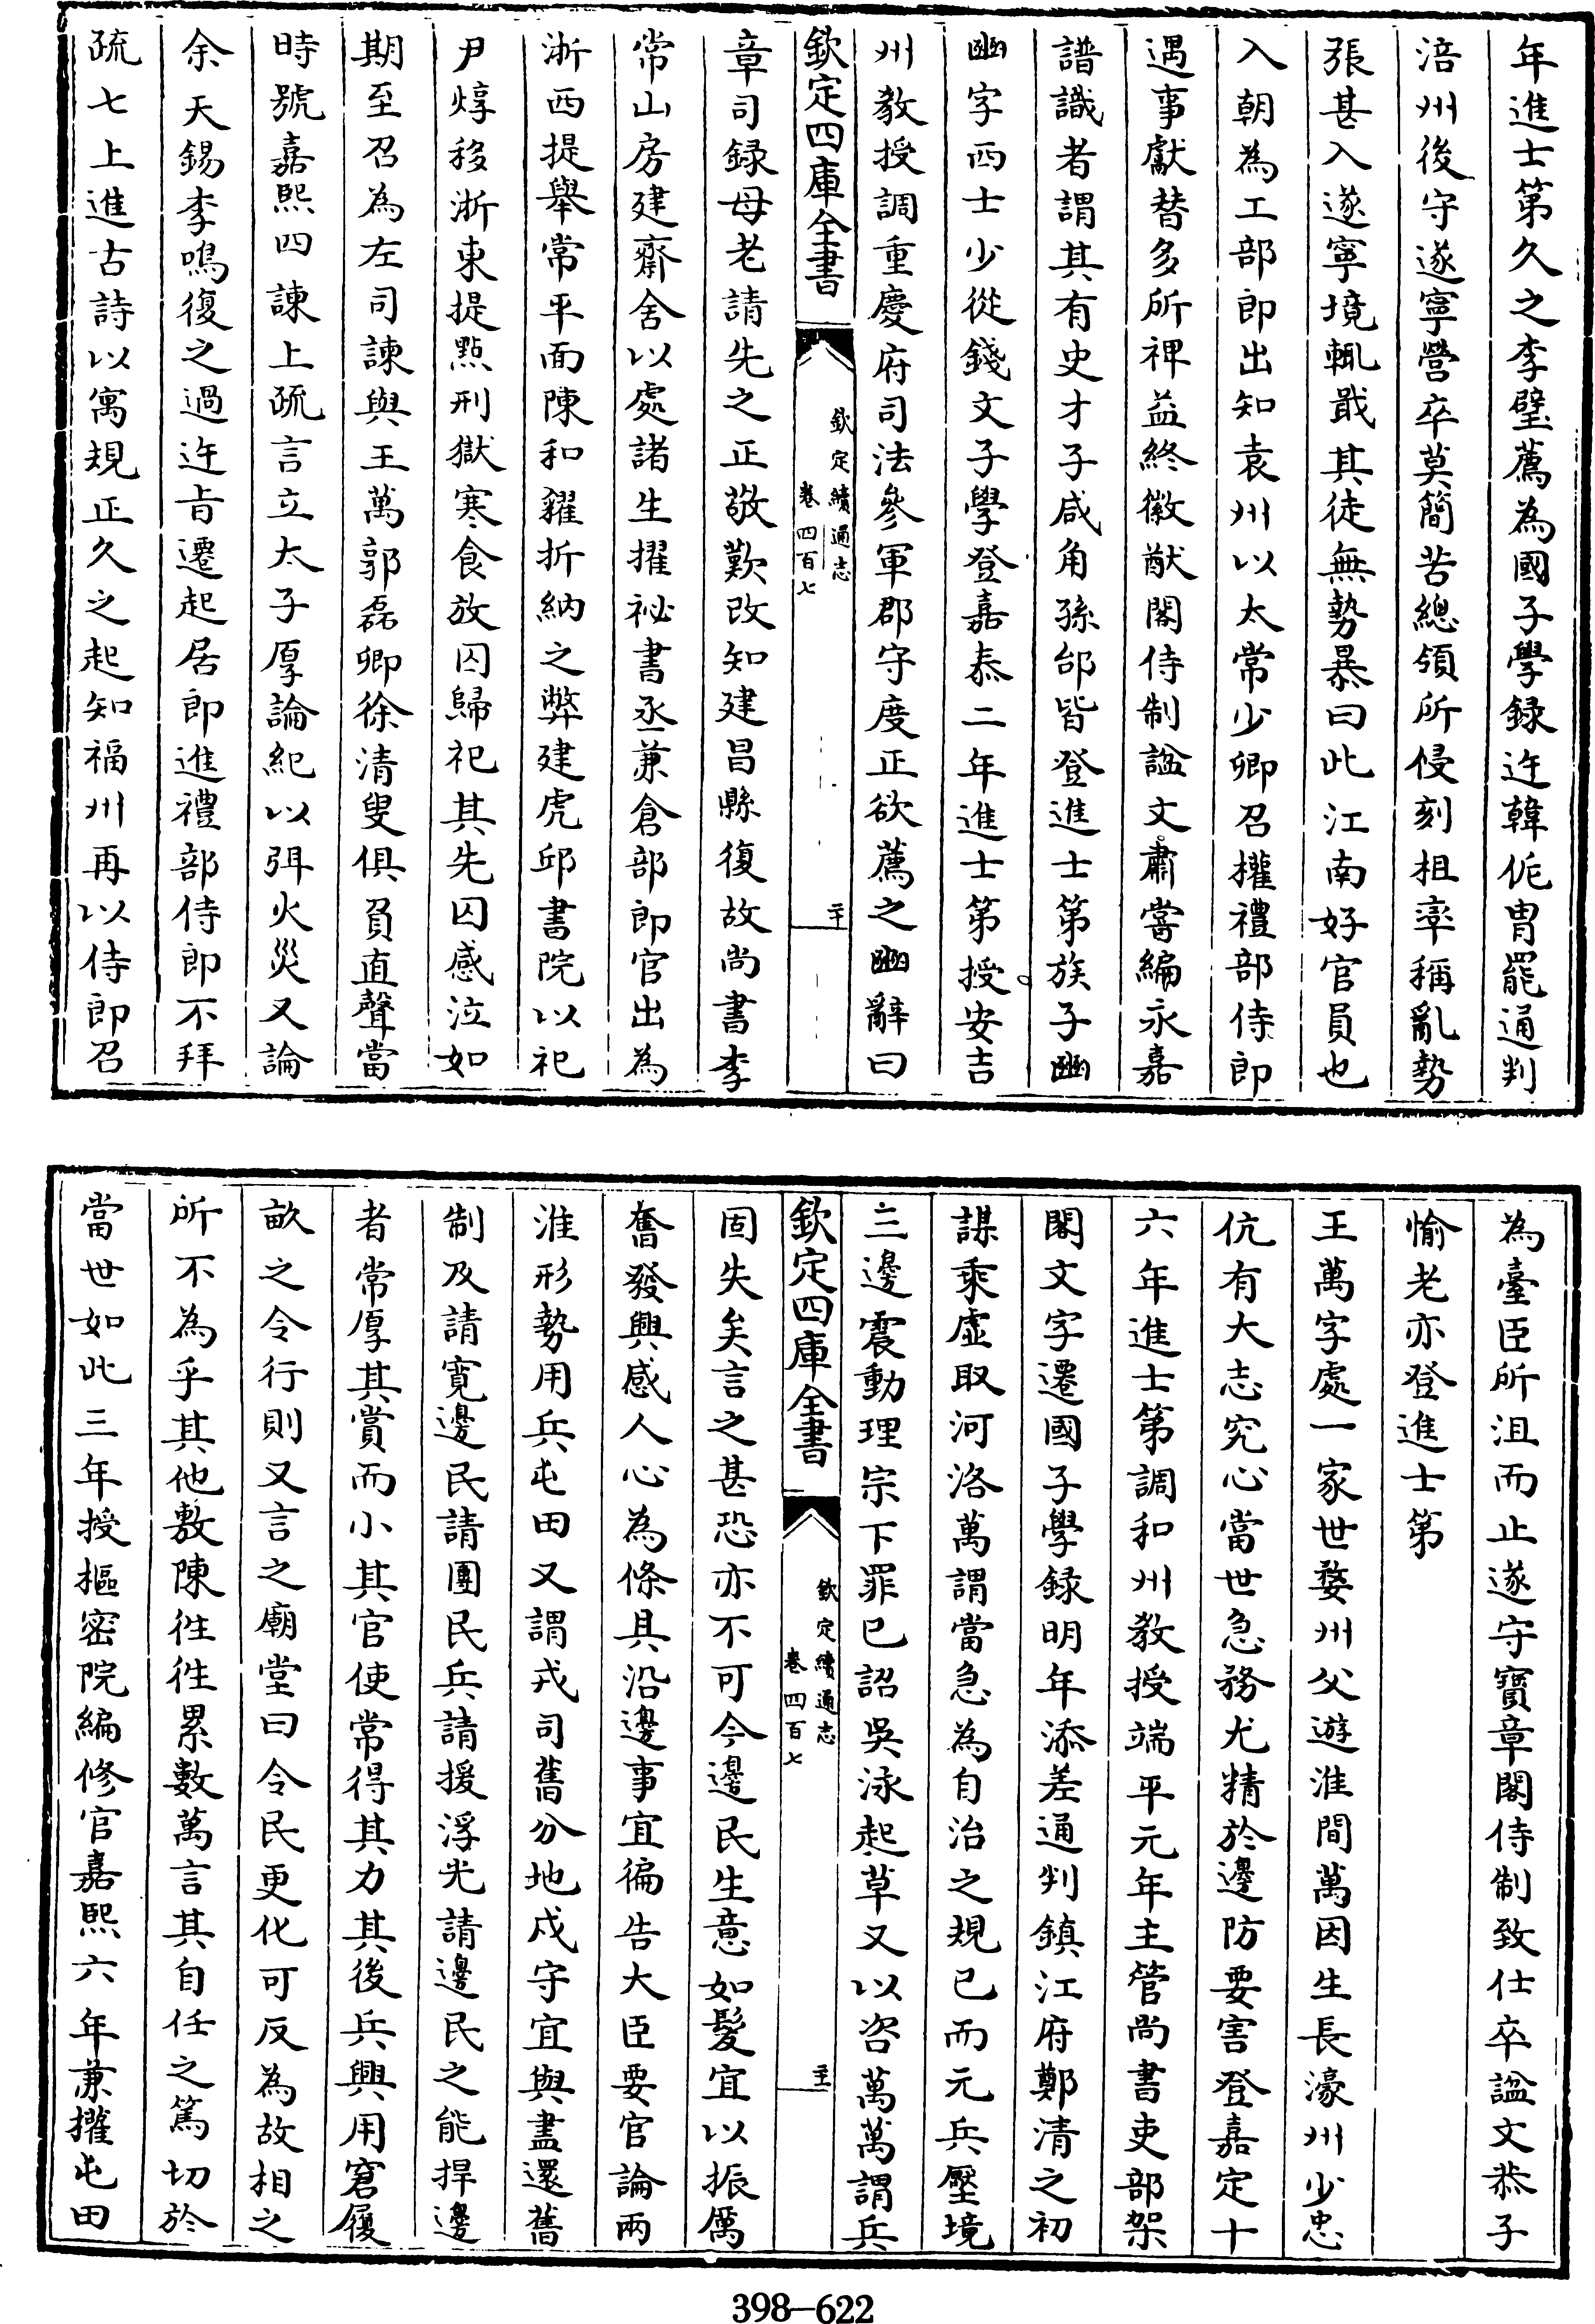 年進士第久之李壁薦為國子學録迕韓侂冑罷通判
涪州後守遂寧營卒莫簡苦總領所侵刻相率稱亂勢
張甚入遂寧境輒戢其徒無勢暴曰此江南好官員也
入朝為工部郎出知袁州以太常少卿召權禮部侍郎
遇事獻替多所裨益終徽猷閣待制諡文肅嘗編永嘉
譜識者謂其有史才子咸角孫邰皆登進士第族子豳
豳字西士少從錢文子學登嘉泰二年進士第授安吉
州教授調重慶府司法參軍郡守度正欲薦之豳辭曰
欽定四庫全書
欽定續通志
卷四百七
二十
章司録母老請先之正敬歎改知建昌縣復故尚書李
常山房建齋舍以處諸生擢祕書丞兼倉部郎官出為
浙西提舉常平面陳和糴折納之弊建虎邱書院以祀
尹焞移浙東提點刑獄寒食放囚歸祀其先囚感泣如
期至召為左司諫與王萬郭磊卿徐清叟俱負直聲當
時號嘉熙四諫上疏言立太子厚論紀以弭火災又論
余天錫李鳴復之過迕旨遷起居郎進禮部侍郎不拜
疏七上進古詩以寓規正久之起知福州再以侍郎召
為臺臣所沮而止遂守寶章閣待制致仕卒諡文恭子
愉老亦登進士第
王萬字處一家世婺州父遊淮間萬因生長濠州少忠
伉有大志究心當世急務尤精於邊防要害登嘉定十
六年進士第調和州教授端平元年主管尚書吏部架
閣文字遷國子學録明年添差通判鎮江府鄭清之初
謀乘虛取河洛萬謂當急為自治之規已而元兵壓境
三邊震動理宗下罪己詔吳泳起草又以咨萬萬謂兵
欽定四庫全書
欽定續通志
卷四百七
二十一
固失矣言之甚恐亦不可今邊民生意如髮宜以振厲
奮發興感人心為條具沿邊事宜徧告大臣要官論兩
淮形勢用兵屯田又謂戎司舊分地戍守宜與盡還舊
制及請寛邊民請團民兵請援浮光請邊民之能捍邊
者常厚其賞而小其官使常得其力其後兵興用窘履
畝之令行則又言之廟堂曰令民更化可反為故相之
所不為乎其他敷陳徃徃累數萬言其自任之篤切於
當世如此三年授樞密院編修官嘉熙六年兼權屯田
398—622